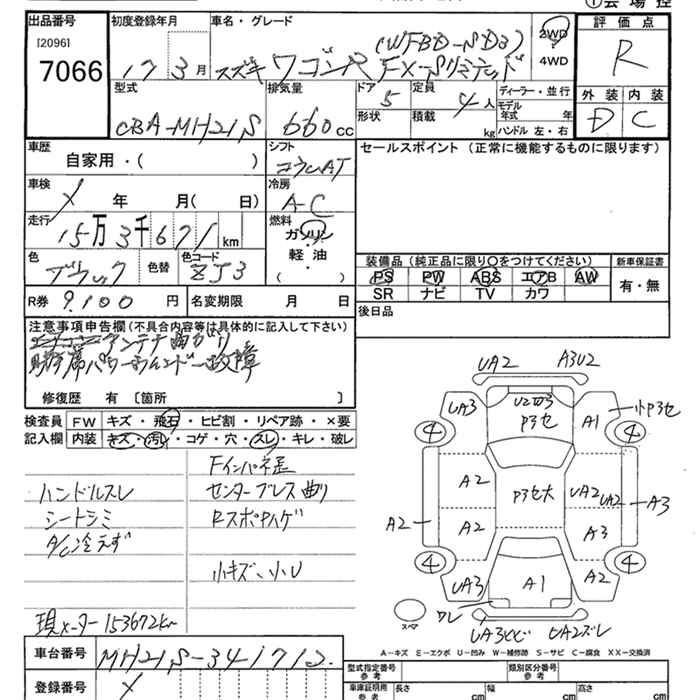 出品番号 初度登録年月 車名・グレード 評価点
[2096]
7066 17 3月 スズキ ワゴンR (WFBD-SD3) FX-Sリミテッド 2WD 4WD R
型式 排気量 ドア 定員 ディーラー・並行 外装 内装
CBA-MH21S 660cc 5 4人 モデル年式 年 D C
形状 積載 kg ハンドル 左・右
車歴 シフト セールスポイント(正常に機能するものに限ります)
自家用・( ) コラムAT
車検 冷房
X 年 月( 日) A-C
走行 燃料
15万3千671km ガソリン
軽・油
( )
色 色替 色コード 装備品(純正品に限り○をつけてください) 新車保証書
ブラック ZJ3 PS PW ABS エアB AW 有・無
SR ナビ TV カワ
R券 9,100円 名変期限 月 日 後日品
注意事項申告欄(不具合内容等は具体的に記入して下さい)
アンテナ曲がり
助手席パワーウィンドー故障
修復歴 有 〔箇所 〕
検査員 FW キズ・飛石・ヒビ割・リペア跡・×要
記入欄 内装 キズ・汚レ・コゲ・穴・スレ・キレ・破レ
Fインパネ足
ハンドルスレ センターブレス曲り
シートシミ Rスポサハゲ
A/C冷えず
小キズ、小U
現メーター153672km
車台番号 MH21S-341712
登録番号 X
UA2 A3U2
UA3 P3セ A1 小P3セ
4 4
A2 P3セ大 UA2 UA2 A3
A2 A2 A3
4 4
UA3 A1 A2
ワレ
スペア UA3ヒビ UA2ズレ
A-キズ E-エクボ U-凹み W-補修跡 S-サビ C-腐食 XX-交換済
型式指定番号 参考 類別区分番号 参考
車庫証明用 参考 長さ cm 幅 cm 高さ cm